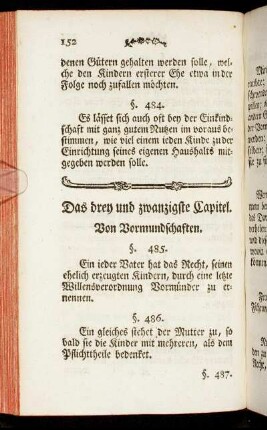 152
denen Gütern gehalten werden solle, wel-
che den Kindern ersterer Ehe etwa in der
Folge noch zufallen möchten.
§. 484.
Es lässet sich auch oft bey der Einkind-
schaft mit ganz gutem Nutzen im voraus be-
stimmen, wie viel einem ieden Kinde zu der
Einrichtung seines eigenen Haushalts mit-
gegeben werden solle.
Das drey und zwanzigste Capitel.
Von Vormundschaften.
§. 485.
Ein ieder Vater hat das Recht, seinen
ehelich erzeugten Kindern, durch eine letzte
Willensverordnung Vormünder zu er-
nennen.
§. 486.
Ein gleiches stehet der Mutter zu, so
bald sie die Kinder mit mehreren, als dem
Pflichttheile bedenket.
§. 487.